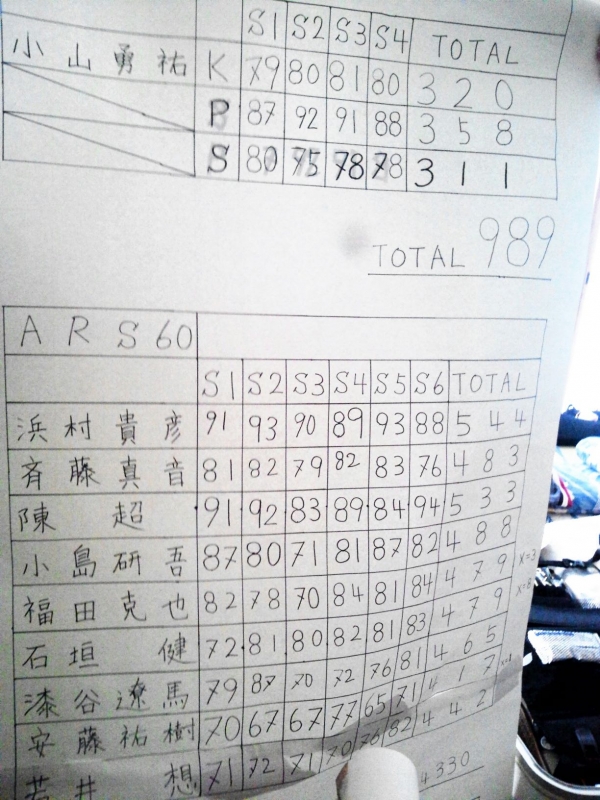 S1 S2 S3 S4 TOTAL
小山勇祐 K 79 80 81 80 320
P 87 92 91 88 358
S 80 75 78 78 311
TOTAL 989
ARS60
S1 S2 S3 S4 S5 S6 TOTAL
浜村貴彦 91 93 90 89 93 88 544
斉藤真音 81 82 79 82 83 76 483
陳超 91 92 83 89 84 94 533
小島研吾 87 80 71 81 87 82 488
福田克也 82 78 70 84 81 84 479
石垣健 72 81 80 82 81 83 479
漆谷遼馬 79 87 70 72 76 81 465
安藤祐樹 70 67 67 77 65 71 417
若井想 71 72 71 70 76 82 442
4330